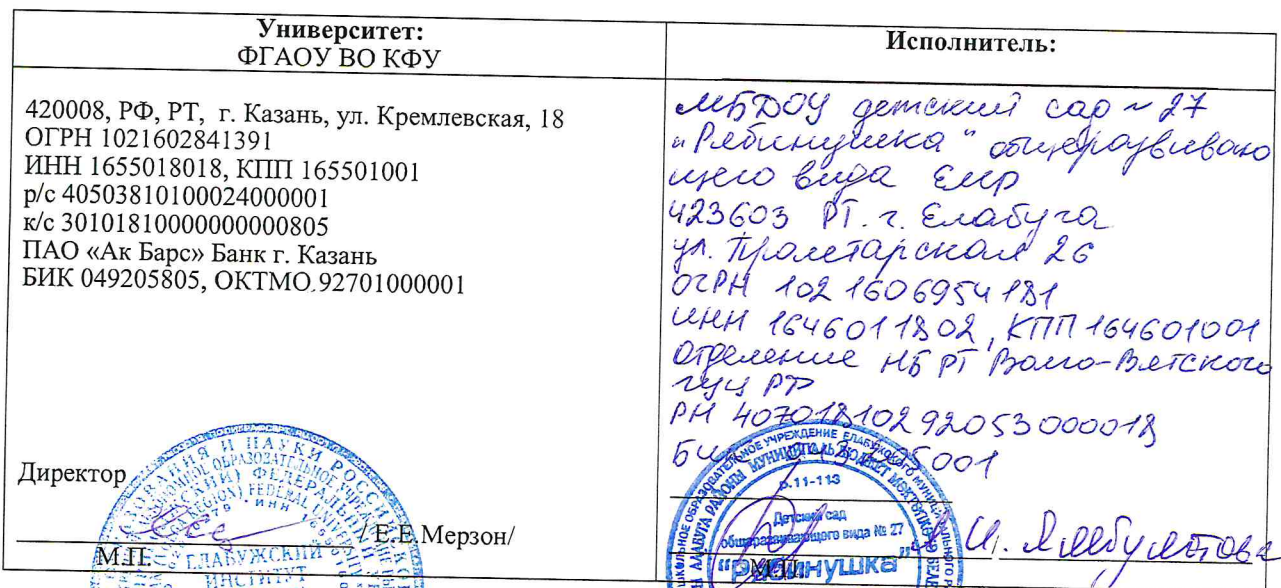 Университет:
ФГАОУ ВО КФУ
Исполнитель:
420008, РФ, РТ, г. Казань, ул. Кремлевская, 18
ОГРН 1021602841391
ИНН 1655018018, КПП 165501001
р/с 40503810100024000001
к/с 30101810000000000805
ПАО «Ак Барс» Банк г. Казань
БИК 049205805, ОКТМО 92701000001
Директор
/ Е.Е.Мерзон/
М.П.
МБДОУ детский сад ~ 27
"Рябинушка" общеразвиваю
щего вида ЕМР
423603 РТ. г. Елабуга
ул. Пролетарская 26
ОГРН 1021606954181
ИНН 1646011802, КПП 164601001
Отделение НБ РТ Волго-Вятского
РН 40701810292053000018
001
М.П.
ОБРАЗОВАНИЯ И НАУКИ
FEDERAL
ИНН
ЕЛАБУЖСКИЙ
ИНСТИТУТ
УЧРЕЖДЕНИЕ
р.11-113
Детский сад
общеразвивающего вида № 27
"рябинушка"